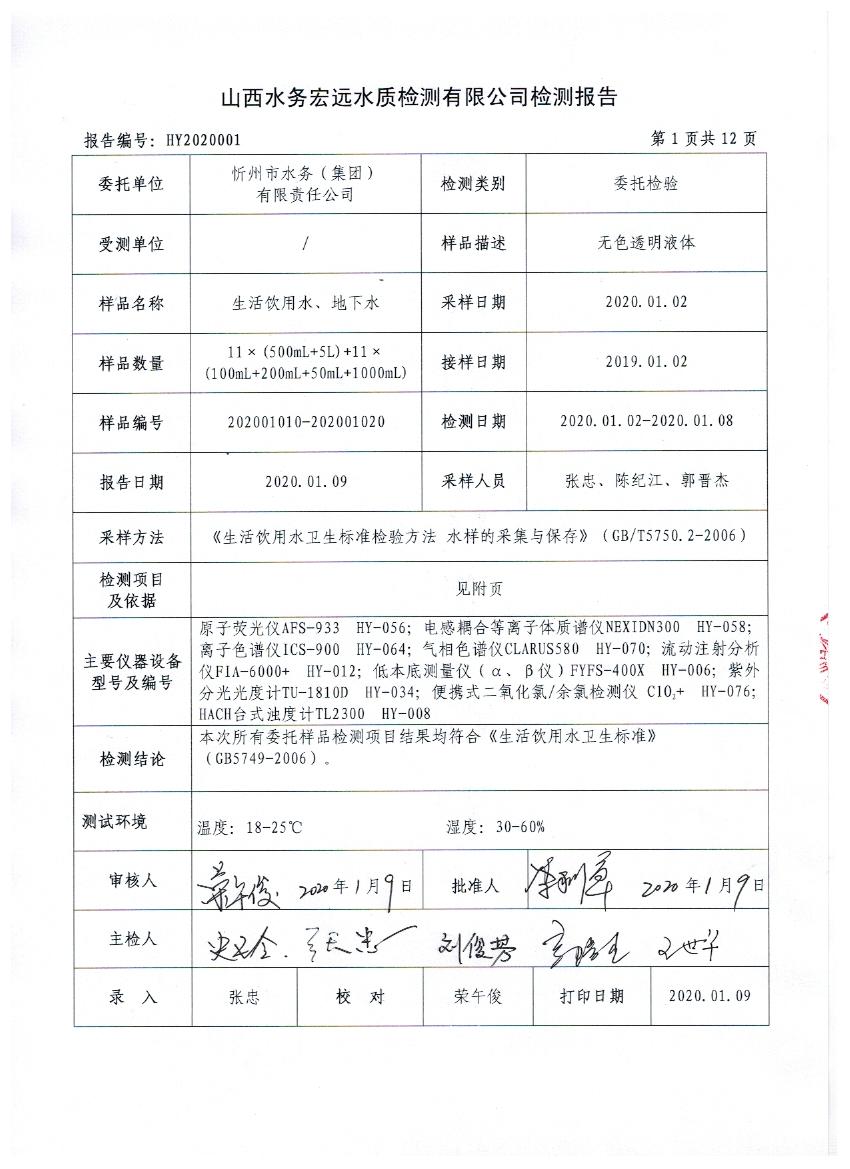 山西水务宏远水质检测有限公司检测报告
报告编号：HY2020001 第 1 页共 12 页
委托单位 忻州市水务（集团）有限责任公司 检测类别 委托检验
受测单位 / 样品描述 无色透明液体
样品名称 生活饮用水、地下水 采样日期 2020.01.02
样品数量 11×(500mL+5L)+11×(100mL+200mL+50mL+1000mL) 接样日期 2019.01.02
样品编号 202001010-202001020 检测日期 2020.01.02-2020.01.08
报告日期 2020.01.09 采样人员 张忠、陈纪江、郭晋杰
采样方法 《生活饮用水卫生标准检验方法 水样的采集与保存》（GB/T5750.2-2006）
检测项目及依据 见附页
主要仪器设备型号及编号
原子荧光仪AFS-933 HY-056；电感耦合等离子体质谱仪NEXIDN300 HY-058；
离子色谱仪ICS-900 HY-064；气相色谱仪CLARUS580 HY-070；流动注射分析
仪FIA-6000+ HY-012；低本底测量仪（α、β仪）FYFS-400X HY-006；紫外
分光光度计TU-1810D HY-034；便携式二氧化氯/余氯检测仪 ClO₂+ HY-076；
HACH台式浊度计TL2300 HY-008
检测结论
本次所有委托样品检测项目结果均符合《生活饮用水卫生标准》
（GB5749-2006）。
测试环境 温度：18-25℃ 湿度：30-60%
审核人 荣午俊 2020年1月9日 批准人 2020年1月9日
主检人 刘俊梦 王世华
录 入 张忠 校 对 荣午俊 打印日期 2020.01.09